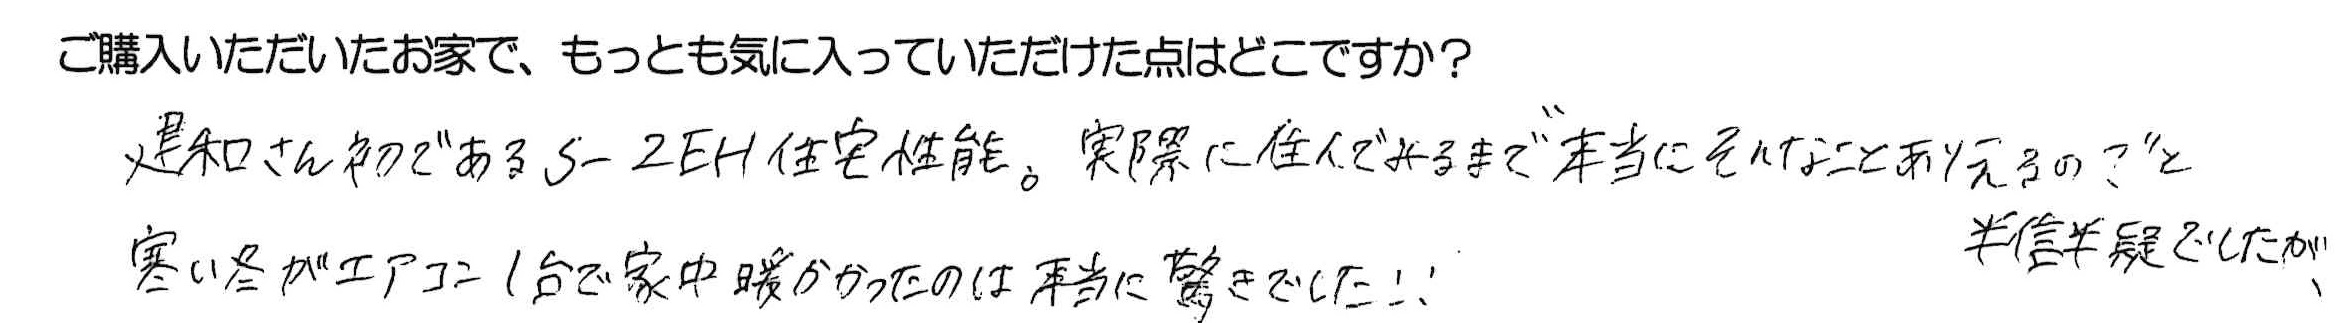 ご購入いただいたお家で、もっとも気に入っていただけた点はどこですか？
建和さん初であるS-ZEH住宅性能。実際に住んでみるまで本当にそんなことありえるのごと
半信半疑でしたが、
寒い冬がエアコン1台で家中暖かかったのは本当に驚きでした!!